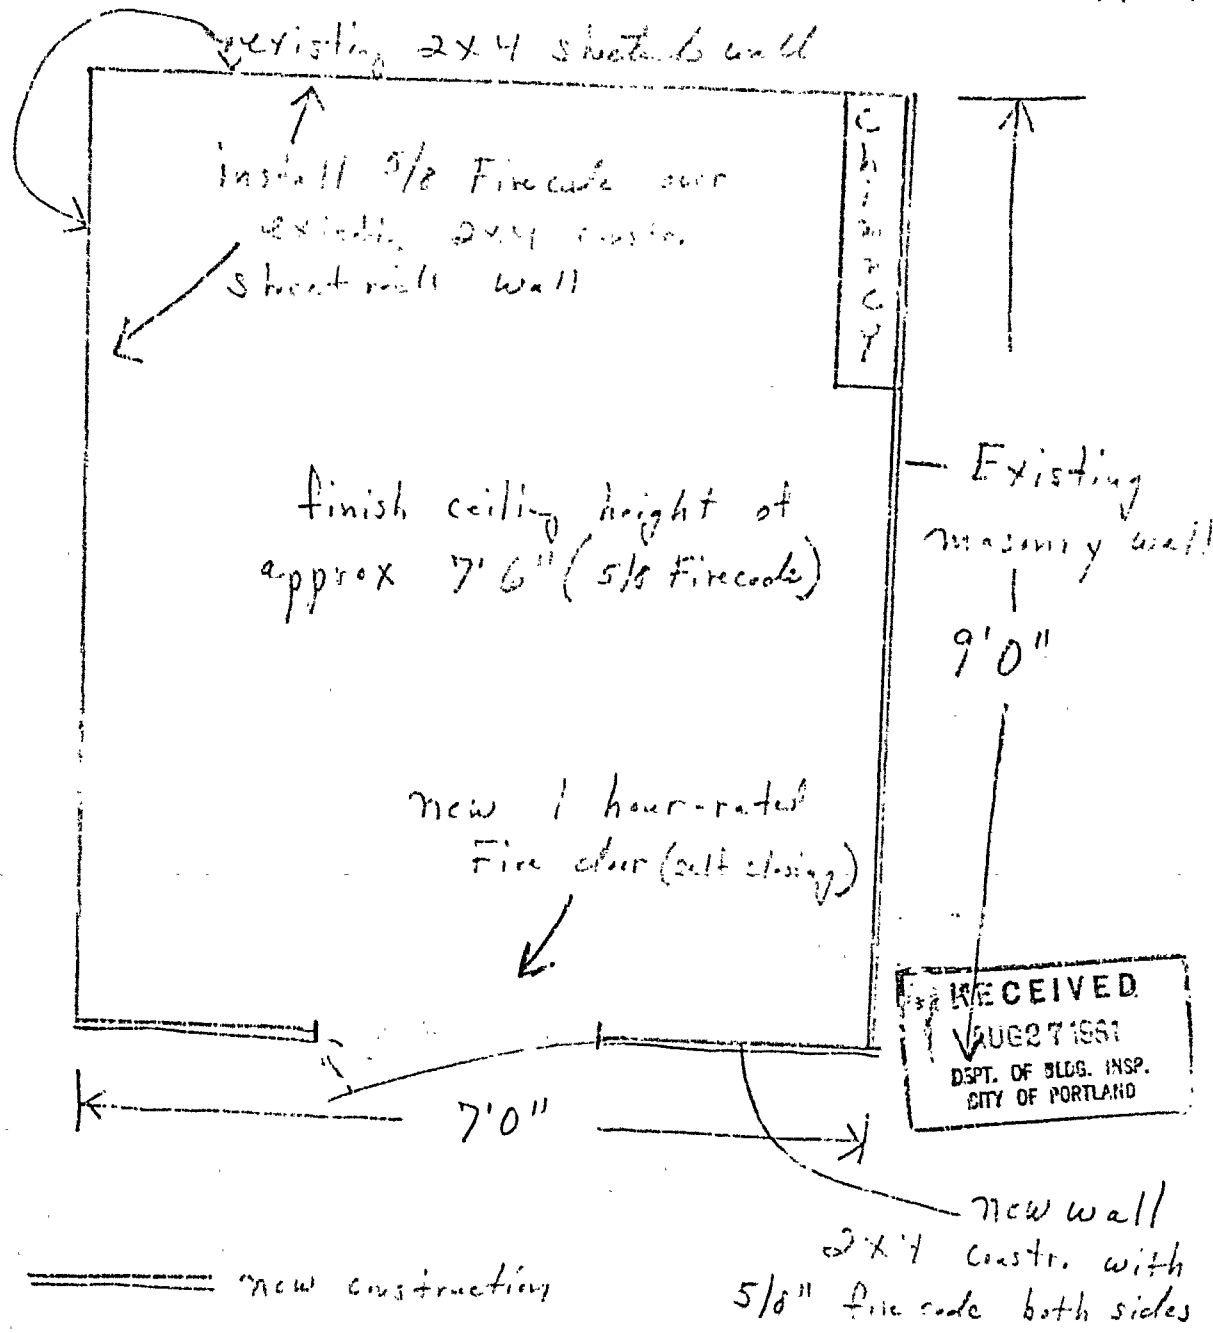 existing 2x4 wall
install 5/8 Firecode over
existing 2x4 constr.
sheetrock wall
Chimney
finish ceiling height of
approx 7'6" (5/8 Firecode)
Existing
masonry wall
9'0"
new 1 hour-rated
Fire door (self closing)
RECEIVED
AUG 27 1981
DEPT. OF BLDG. INSP.
CITY OF PORTLAND
7'0"
new wall
2x4 constr. with
5/8" fire code both sides
new construction